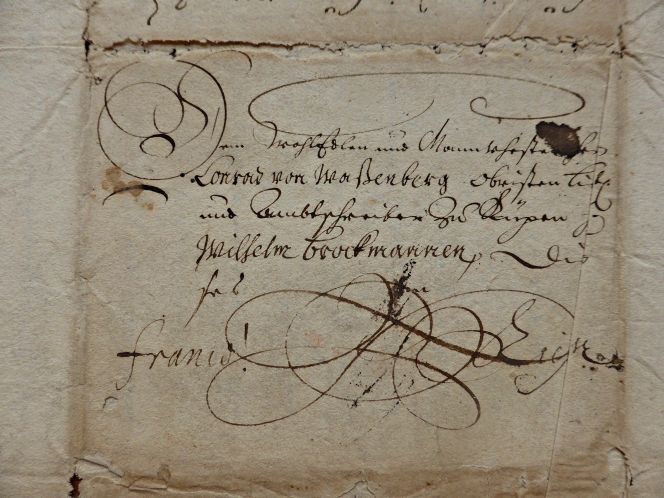 Dem WohlEdlen und Mannvhesten
Conrad von Waßenberg Obristen
und Ambtschreiber zu Rüpen
Wilhelm Brockmannen, Die
ses
franco!